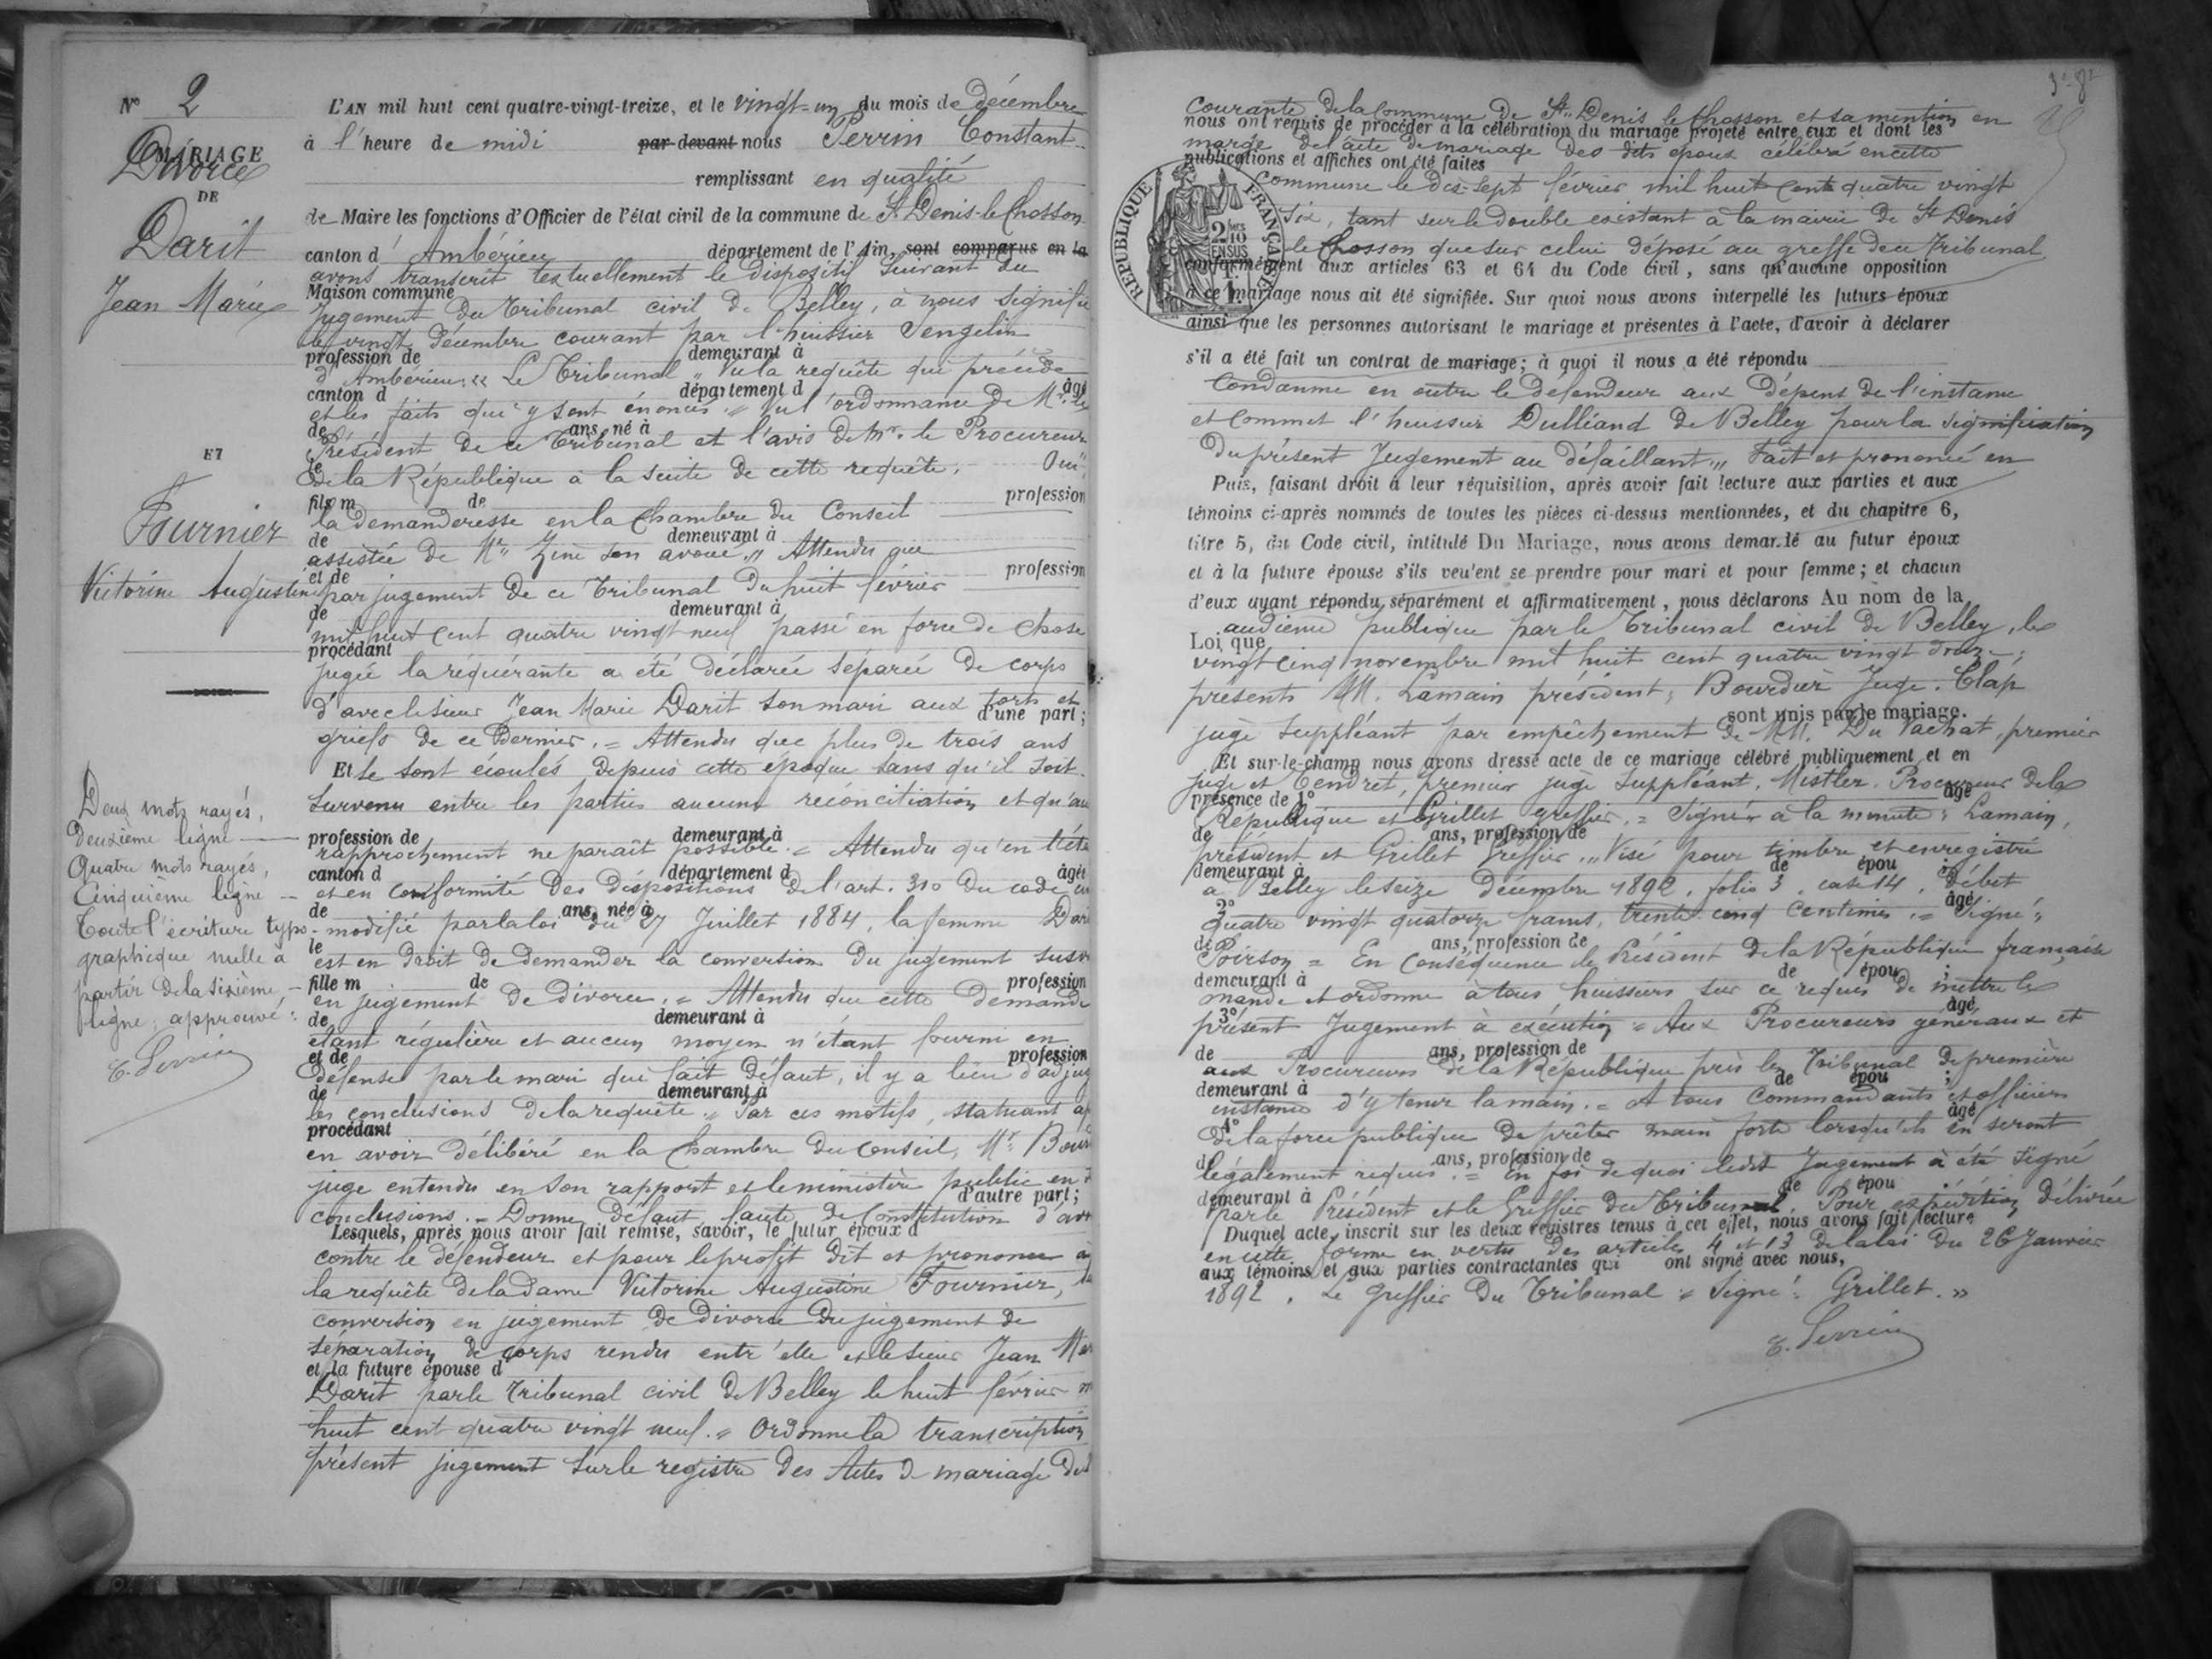 N° 2
MARIAGE
Divorce
DE
Darit
Jean Marie
ET
Fournier
Victorine Augustine
Deux mots rayés,
deuxième ligne
Quatre mots rayés,
Cinquième ligne
Toute l'écriture typo-
graphique nulle à
partir de la sixième
ligne, approuvé :
C. Perrin
L'AN mil huit cent quatre-vingt-treize, et le vingt-un du mois de décembre
à l'heure de midi par-devant nous Perrin Constant
remplissant en qualité
de Maire les fonctions d'Officier de l'état civil de la commune de St Denis-le-Chosson
canton d'Ambérieu département de l'Ain, sont comparus en la
avons transcrit textuellement le dispositif suivant du
Maison commune
jugement du tribunal civil de Belley, à nous signifié
le vingt décembre courant par l'huissier Tengelin
profession de demeurant à
d'Ambérieu : « Le Tribunal " Vu la requête qui précède
canton d département d âgé
et les faits qui y sont énoncés = Vu l'ordonnance de Mr le
de ans, né à
Président de ce Tribunal et l'avis de Mr. le Procureur
le
de la République à la suite de cette requête. Oui
fils m de profession
la demanderesse en la Chambre du Conseil
de demeurant à
assistée de Me son avoué " Attendu que
et de profession
par jugement de ce Tribunal du huit février
de demeurant à
mil huit cent quatre vingt neuf passé en force de chose
procédant
jugée la requérante a été déclarée séparée de corps
d'avec le sieur Jean Marie Darit son mari aux torts et
d'une part ;
griefs de ce dernier. = Attendu que plus de trois ans
Et le sont écoulés depuis cette époque sans qu'il soit
survenu entre les parties aucune réconciliation et qu'au
profession de demeurant à
rapprochement ne paraît possible. = Attendu qu'en l'éta
canton d département d âgée
et en conformité des dispositions de l'art. 310 du code
de ans, née à
modifié par la loi du 27 Juillet 1884, la femme Dari
le
est en droit de demander la conversion du jugement
fille m de profession
en jugement de divorce. = Attendu que cette demande
de demeurant à
étant régulière et aucun moyen n'étant fourni en
et de profession
défense par le mari qui fait défaut, il y a lieu d'adjug
de demeurant à
les conclusions de la requête. " Par ces motifs, statuant
procédant
en avoir délibéré en la Chambre du Conseil, Mr. Bour
juge entendu en son rapport et le ministère public en
d'autre part ;
conclusions. = Donne défaut faute de Constitution d'av
Lesquels, après nous avoir fait remise, savoir, le futur époux d
contre le défendeur et pour le profit dit et prononce à
la requête de la dame Victorine Augustine Fournier, la
conversion en jugement de divorce du jugement de
séparation de corps rendu entr'elle et le sieur Jean Mar
et la future épouse d
Darit par le Tribunal civil de Belley le huit février
huit cent quatre vingt neuf. = Ordonne la transcription
présent jugement sur le registre des Actes de mariage de
courante de la Commune de St Denis le Chosson et sa mention en
nous ont requis de procéder à la célébration du mariage projeté entre eux et dont les
marge de l'acte de mariage des dits époux célébré en cette
publications et affiches ont été faites
RÉPUBLIQUE FRANÇAISE
commune le dix-sept février mil huit cent quatre vingt
six, tant sur le double existant à la mairie de St Denis
le Chosson que sur celui déposé au greffe du Tribunal
conformément aux articles 63 et 64 du Code civil, sans qu'aucune opposition
à ce mariage nous ait été signifiée. Sur quoi nous avons interpellé les futurs époux
ainsi que les personnes autorisant le mariage et présentes à l'acte, d'avoir à déclarer
s'il a été fait un contrat de mariage ; à quoi il nous a été répondu
Condamne en outre le défendeur aux dépens de l'instance
et commet l'huissier Dulliand de Belley pour la signification
du présent Jugement au défaillant " Fait et prononcé en
Puis, faisant droit à leur réquisition, après avoir fait lecture aux parties et aux
témoins ci-après nommés de toutes les pièces ci-dessus mentionnées, et du chapitre 6,
titre 5, du Code civil, intitulé Du Mariage, nous avons demandé au futur époux
et à la future épouse s'ils veulent se prendre pour mari et pour femme ; et chacun
d'eux ayant répondu séparément et affirmativement, nous déclarons Au nom de la
audience publique par le Tribunal civil de Belley, le
Loi, que
vingt cinq novembre mil huit cent quatre vingt douze ;
présents MM. Lamain président ; Bourdier Juge. Clap
sont unis par le mariage.
juge suppléant par empêchement de MM. Du Vachat, premier
Et sur-le-champ nous avons dressé acte de ce mariage célébré publiquement et en
juge et Tendret, premier juge suppléant, Mistler, Procureur de la
présence de 1° âgé
République et Grillet greffier. = Signé à la minute : Lamain,
de ans, profession de
président et Grillet Greffier. " Visé pour timbre et enregistré
demeurant à de épou ;
à Belley le seize décembre 1892, folio 3, case 14. Débet
2° âgé
quatre vingt quatorze francs, trente cinq centimes. = Signé "
de ans, profession de
Poirson = En conséquence le Président de la République française
demeurant à de épou ;
mande et ordonne à tous huissiers sur ce requis de mettre le
3° âgé
présent Jugement à exécution = Aux Procureurs généraux et
de ans, profession de
aux Procureurs de la République près les Tribunal de première
demeurant à de épou ;
instance d'y tenir la main. = A tous Commandants et officiers
4° âgé
de la force publique de prêter main forte lorsqu'ils en seront
d ans, profession de
légalement requis. = En foi de quoi ledit Jugement a été signé
demeurant à de épou ;
par le Président et le Greffier du Tribunal. Pour expédition délivrée
Duquel acte, inscrit sur les deux registres tenus à cet effet, nous avons fait lecture
en cette forme en vertu des articles 4 et 13 de la loi du 26 Janvier
aux témoins et aux parties contractantes qui ont signé avec nous,
1892. Le Greffier du Tribunal = Signé : Grillet. »
C. Perrin